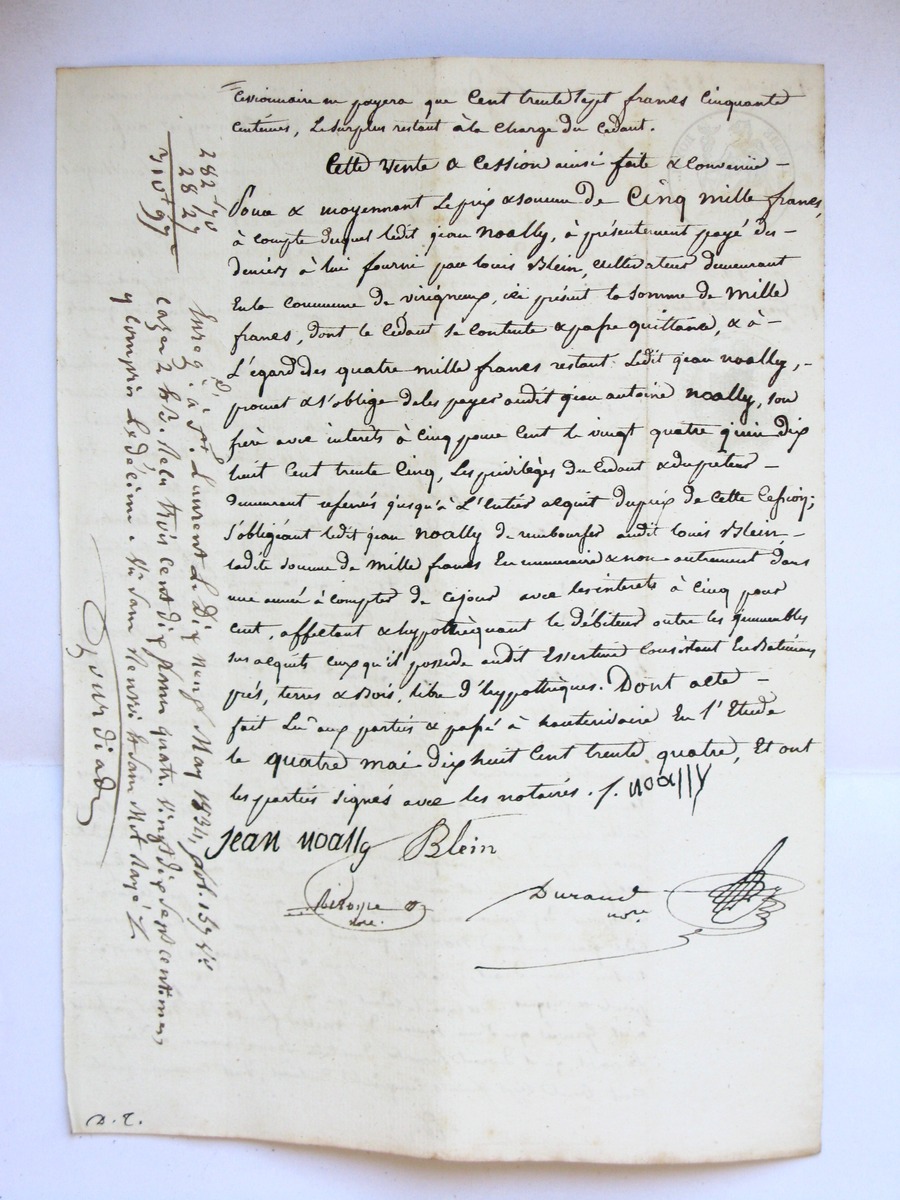 Cessionnaire ne payera que Cent trente sept francs Cinquante
Centimes, Le surplus restant à la charge du Cedant.
Cette vente & Cession ainsi faite & Convenue -
Pour & moyennant Le prix & somme de Cinq mille francs,
à compte duquel ledit jean Noally, à présentement payé des -
deniers à lui fourni par louis Blein, cultivateur demeurant
En la commune de virigneux, ici présent la Somme de Mille
francs, dont le Cédant se contente & passe quittance, & à -
L'égard des quatre mille francs restant Ledit jean Noally, -
promet & s'oblige de les payer audit jean antoine Noally, son
frère avec interêts à Cinq pour Cent le vingt quatre juin dix
huit Cent trente Cinq, Les privilèges du Cedant & du préteur -
demeurant reservés jusqu'à L'Entier acquit du prix de Cette Cession;
S'obligéant ledit jean Noally de rembourser audit louis Blein, -
ladite somme de Mille francs En numeraire & non autrement dans
une année à compter de ce jour avec les interets à Cinq pour
Cent, affectant & hypothèquant le débiteur outre les immeubles
sus acquits ceux qu'il possede audit Essertines Consistant En Batiments
prés, terres & Bois, libre d'hypothèques. Dont acte -
fait Lu aux parties & passé à En l'Etude
le quatre mai dix huit Cent trente quatre, Et ont
les parties signés avec les notaires. J. Noally
Jean Noally Blein
nore.
Durand
nore
282 f 70
28 27
310 f 97
Enreg. à St. Laurent Le Dix neuf May 1834, fol. 157 vo
cazes 2 & 3. Reçu trois cent dix francs quatre vingt dix sept centimes
y compris Le décime.
D. T.